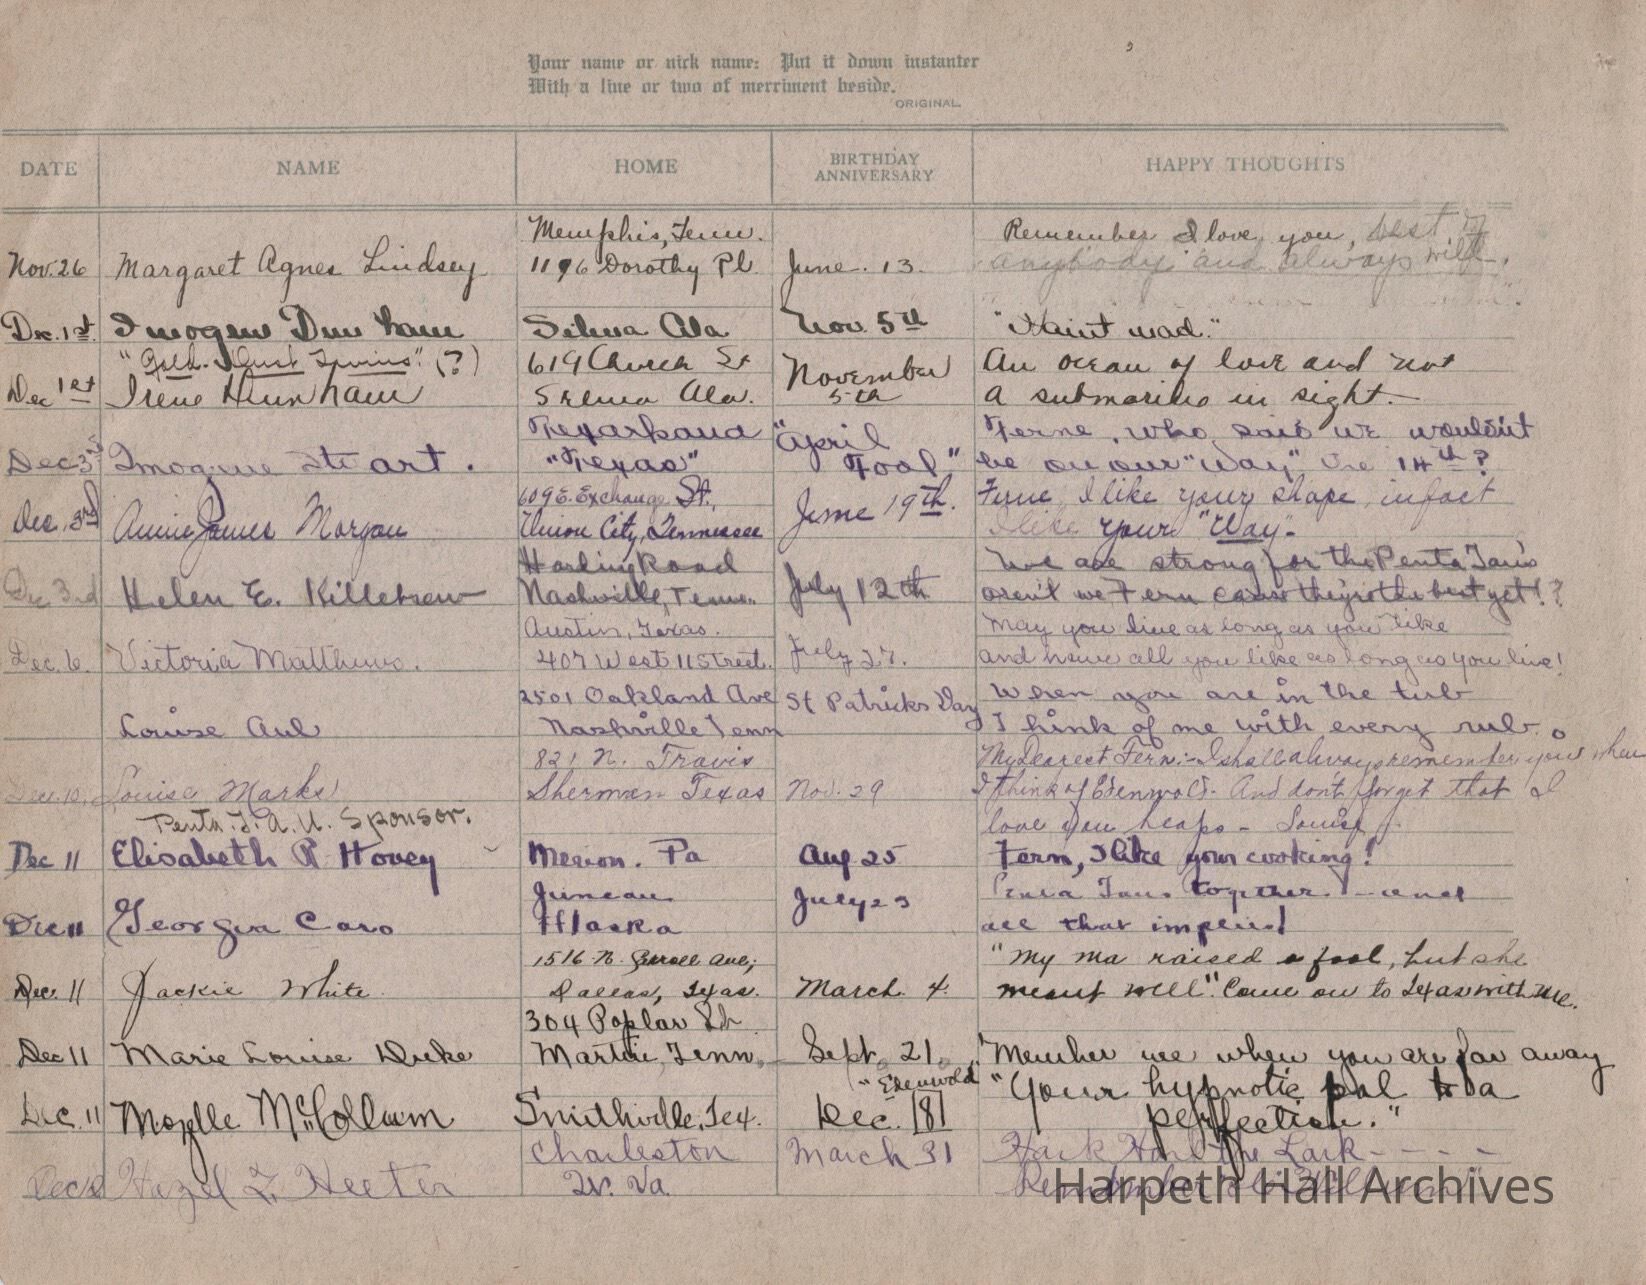 Your name or nick name: Put it down instanter
With a line or two of merriment beside.
ORIGINAL
DATE NAME HOME BIRTHDAY ANNIVERSARY HAPPY THOUGHTS
Memphis, Tenn. Remember I love you, best of
Nov. 26 Margaret Agnes Lindsey 1196 Dorothy Pl. June. 13. anybody and always will.
Dec. 1st. Imogene Dunham Selma Ala Nov. 5th "Haint mad."
"Gold-Dust Twins" (?) 619 Church St November An ocean of love and not
Dec 1st Irene Dunham Selma Ala. 5th a submarine in sight.
Texarkana "April Ferne, who said we wouldn't
Dec 3rd Imogene Stuart. "Texas" Fool" be on our "Way" the 14th?
609 E. Exchange St. June 19th. Ferne, I like your shape, in fact
Dec. 3rd Annie James Morgan Union City, Tennessee I like your "Way".
Harding Road We are strong for the Penta Taus
Dec 3rd Helen E. Killebrew Nashville, Tenn. July 12th aren't we Fern cause they're the best yet!?
Austin, Texas. May you live as long as you like
Dec. 6. Victoria Matthews. 407 West 11 Street. July 27. and have all you like as long as you live!
2501 Oakland Ave St Patricks Day When you are in the tub
Louise Aul Nashville Tenn Think of me with every rub.
821 N. Travis My Dearest Fern:- I shall always remember you when
Dec. 10, Louise Marks Sherman Texas Nov. 29 I think of Edenwold. And don't forget that I
Penta. T.A.U. Sponsor. love you heaps - Louise
Dec 11 Elisabeth R Hovey Merion. Pa Aug 25 Fern, I like your cooking!
Juneau July 23 Penta Taus together - and
Dec 11 Georgia Caro Alaska all that implies!
1516 N. Ave; "My ma raised a fool, but she
Dec. 11 Jackie White Dallas, Texas. March 4. meant well". Come on to Texas with me.
304 Poplar St.
Dec 11 Marie Louise Duke Martin, Tenn. Sept. 21. 'Member me when you are far away
"Edenwold" "Your hypnotic pal to a
Dec. 11 Mozelle McCollum Smithville, Tex. Dec. 18 perfection."
Charleston March 31 Hark Hark the Lark - - - -
Dec Hazel L. Heeter W. Va. Remember
Harpeth Hall Archives